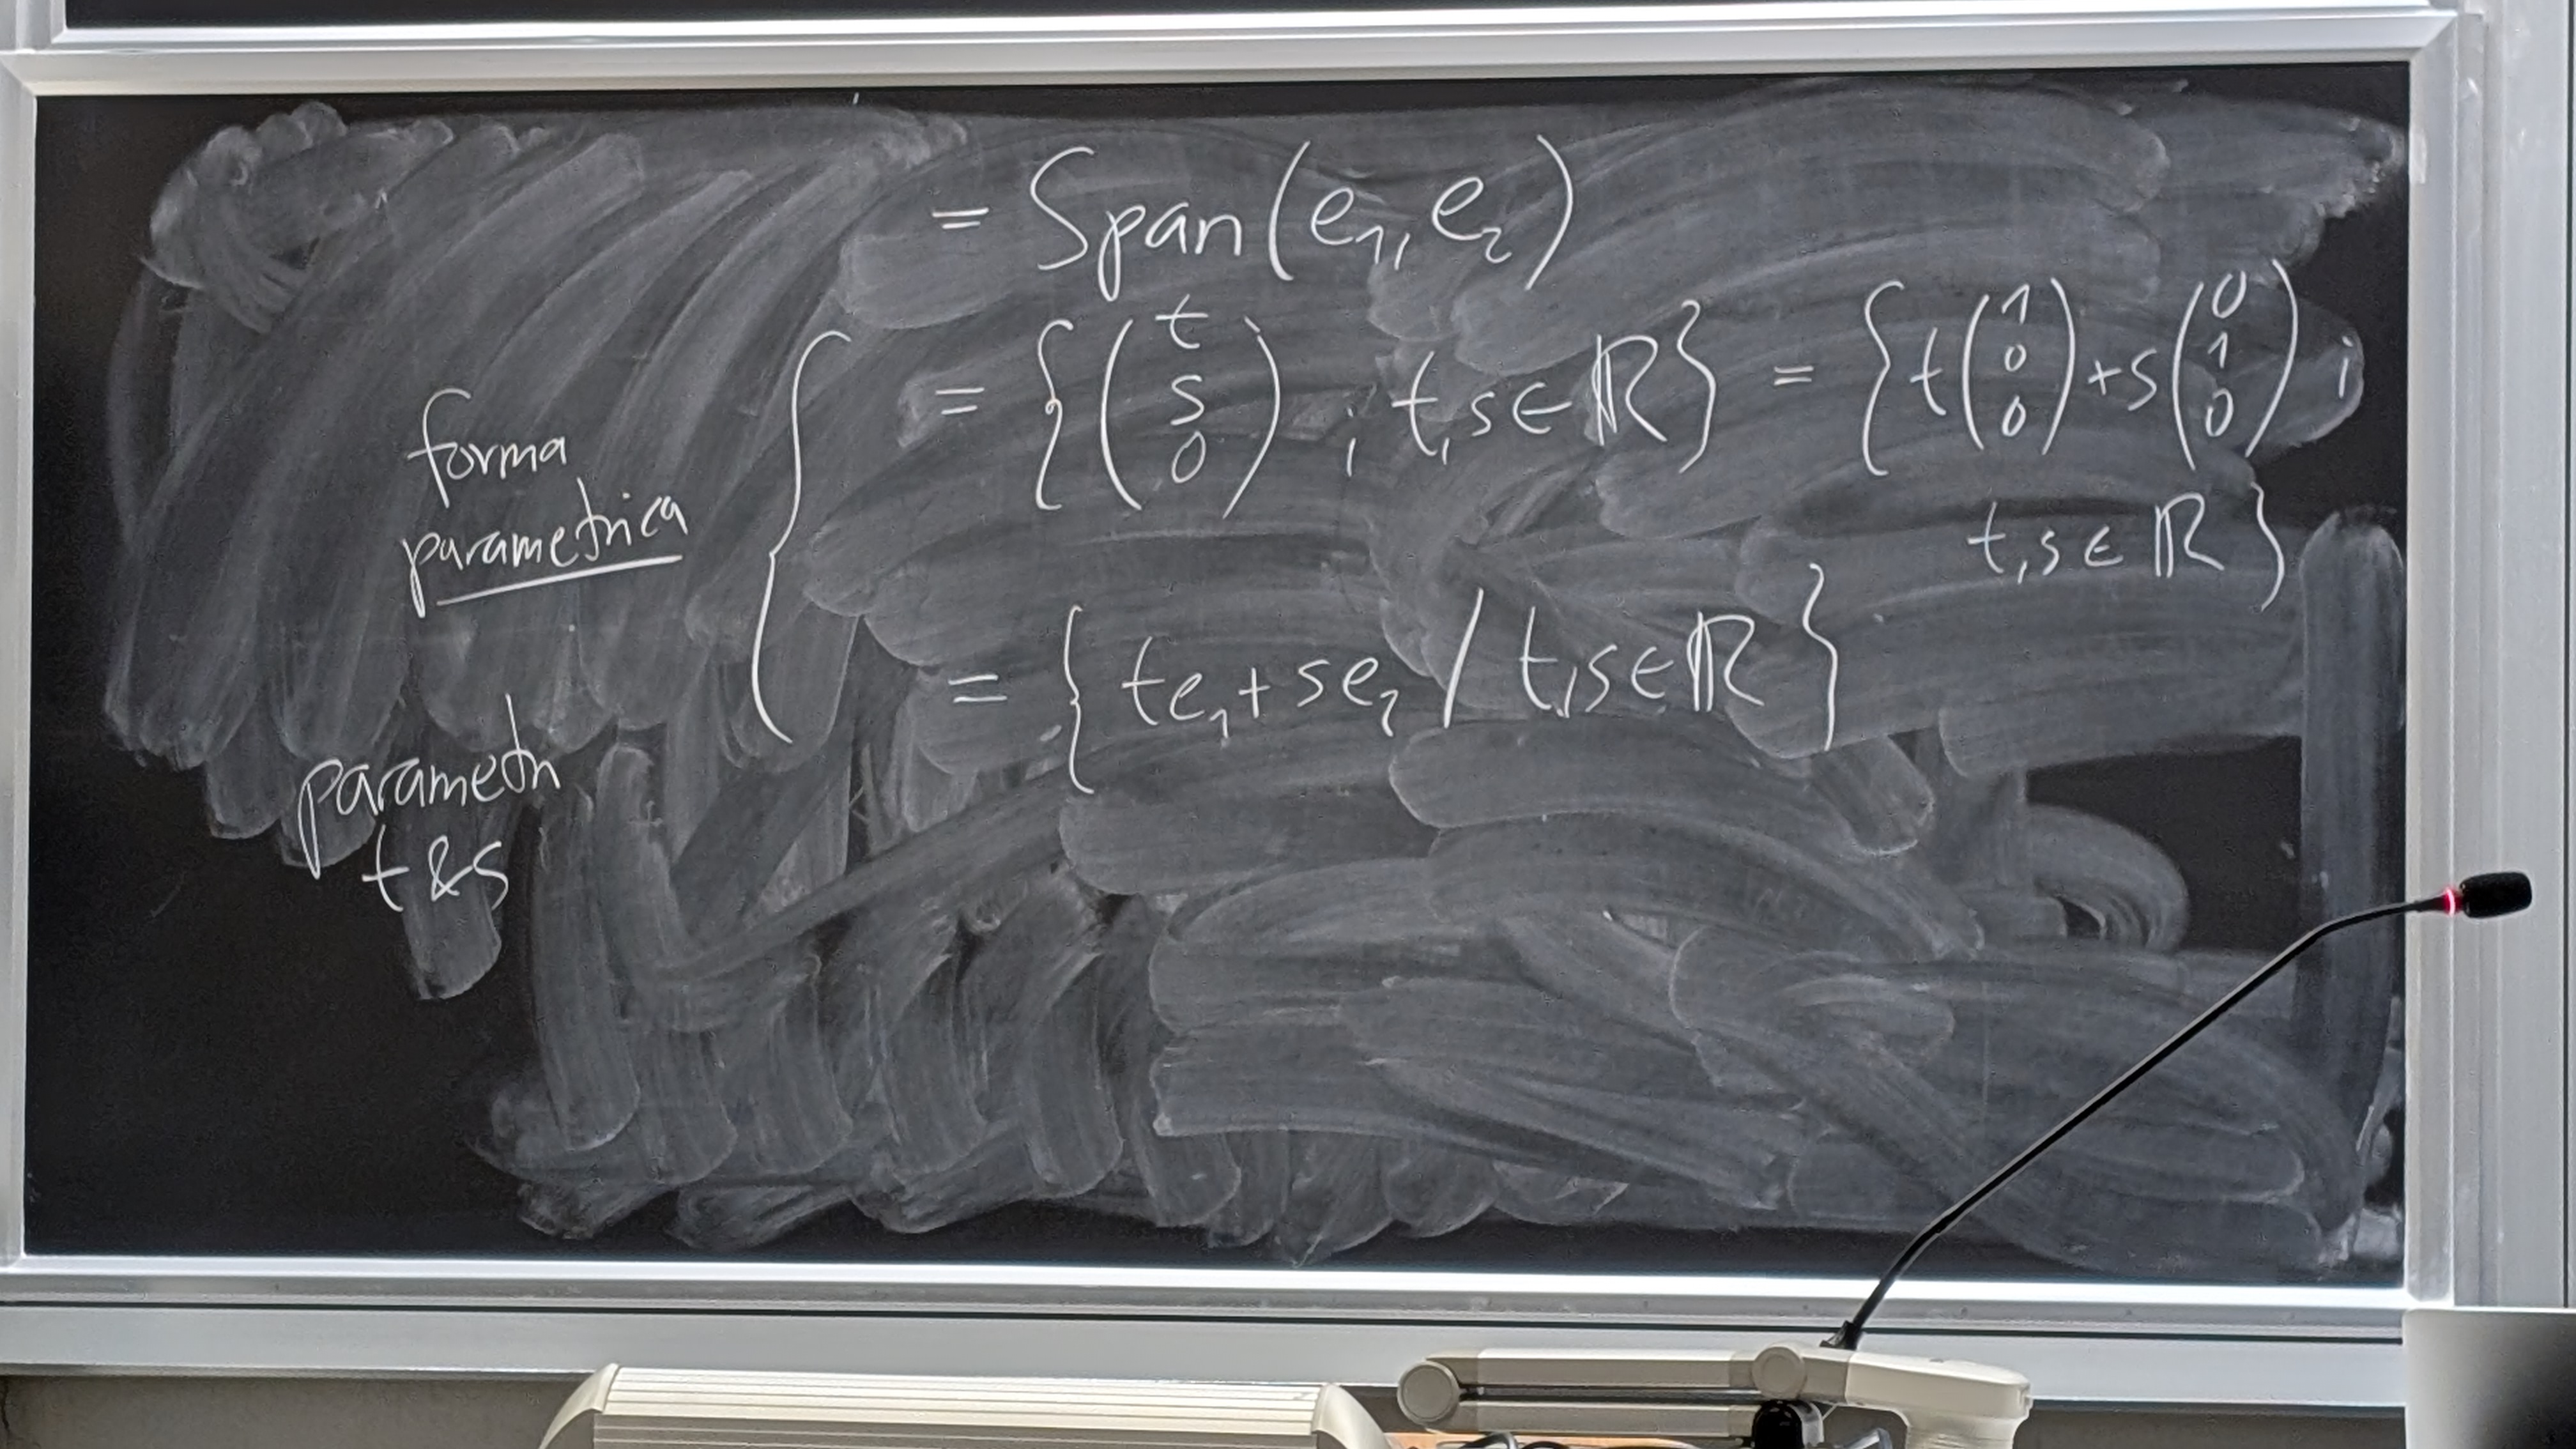 = Span(e₁, e₂)
forma
parametrica
= {(t s 0) ; t,s ∈ ℝ} = {t(1 0 0) + s(0 1 0) ;
t,s ∈ ℝ}
= {te₁ + se₂ / t,s ∈ ℝ}
parametri
t & s